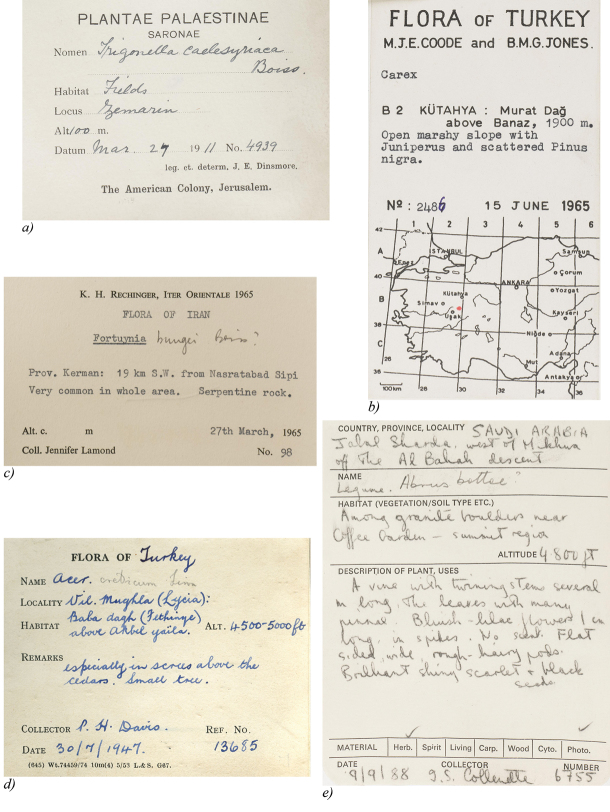 PLANTAE PALAESTINAE
SARONAE
Nomen Trigonella caelesyriaca
Boiss.
Habitat Fields
Locus Zemarin
Alt 100 m.
Datum Mar 27 1911 No. 4939
leg. et. determ, J. E. Dinsmore.
The American Colony, Jerusalem.
a)
FLORA OF TURKEY
M.J.E. COODE and B.M.G. JONES.
Carex
B 2 KÜTAHYA : Murat Dağ
above Banaz, 1900 m.
Open marshy slope with
Juniperus and scattered Pinus
nigra.
Nº : 2486 15 JUNE 1965
1 2 3 4 5 6
42
A
ISTANBUL
Samsun
Çorum
40
ANKARA
Yozgat
B
Kütahya
Simav
Uşak
Kayseri
38
Niğde
C
Adana
Mut
36
Antakya
100km 26 28 30 32 34 36
b)
K. H. RECHINGER, ITER ORIENTALE 1965
FLORA OF IRAN
Fortuynia bungei Boiss?
Prov. Kerman: 19 km S.W. from Nasratabad Sipi
Very common in whole area. Serpentine rock.
Alt. c. m 27th March, 1965
Coll. Jennifer Lamond No. 98
c)
FLORA OF Turkey
NAME Acer. creticum Linn
LOCALITY Vil. Mughla (Lycia):
HABITAT Baba dagh (Fethiye)
above Akbil yaila. ALT. 4500-5000 ft
REMARKS
especially in scroes above the
cedars. Small tree.
COLLECTOR P. H. Davis. REF. NO.
DATE 30/7/1947. 13685
(645) Wt.74459/74 10m(4) 5/53 L.& S. G67.
d)
COUNTRY, PROVINCE, LOCALITY SAUDI ARABIA
Jabal Shada, west of Mikhwa
off the Al Bahah descent
NAME
Legume. Abrus bottae?
HABITAT (VEGETATION/SOIL TYPE ETC.)
Among granite boulders near
Coffee Garden – summit region
ALTITUDE 4800 ft
DESCRIPTION OF PLANT, USES
A vine with twining stems several
m long, the leaves with many
pinnae. Bluish-lilac flowers 1 cm
long, in spikes. No scent. Flat
sided, wide, rough-hairy pods.
Brilliant shiny scarlet + black
seeds
MATERIAL Herb. Spirit Living Carp. Wood Cyto. Photo.
DATE COLLECTOR NUMBER
9/9/88 I.S. Collenette 6755
e)